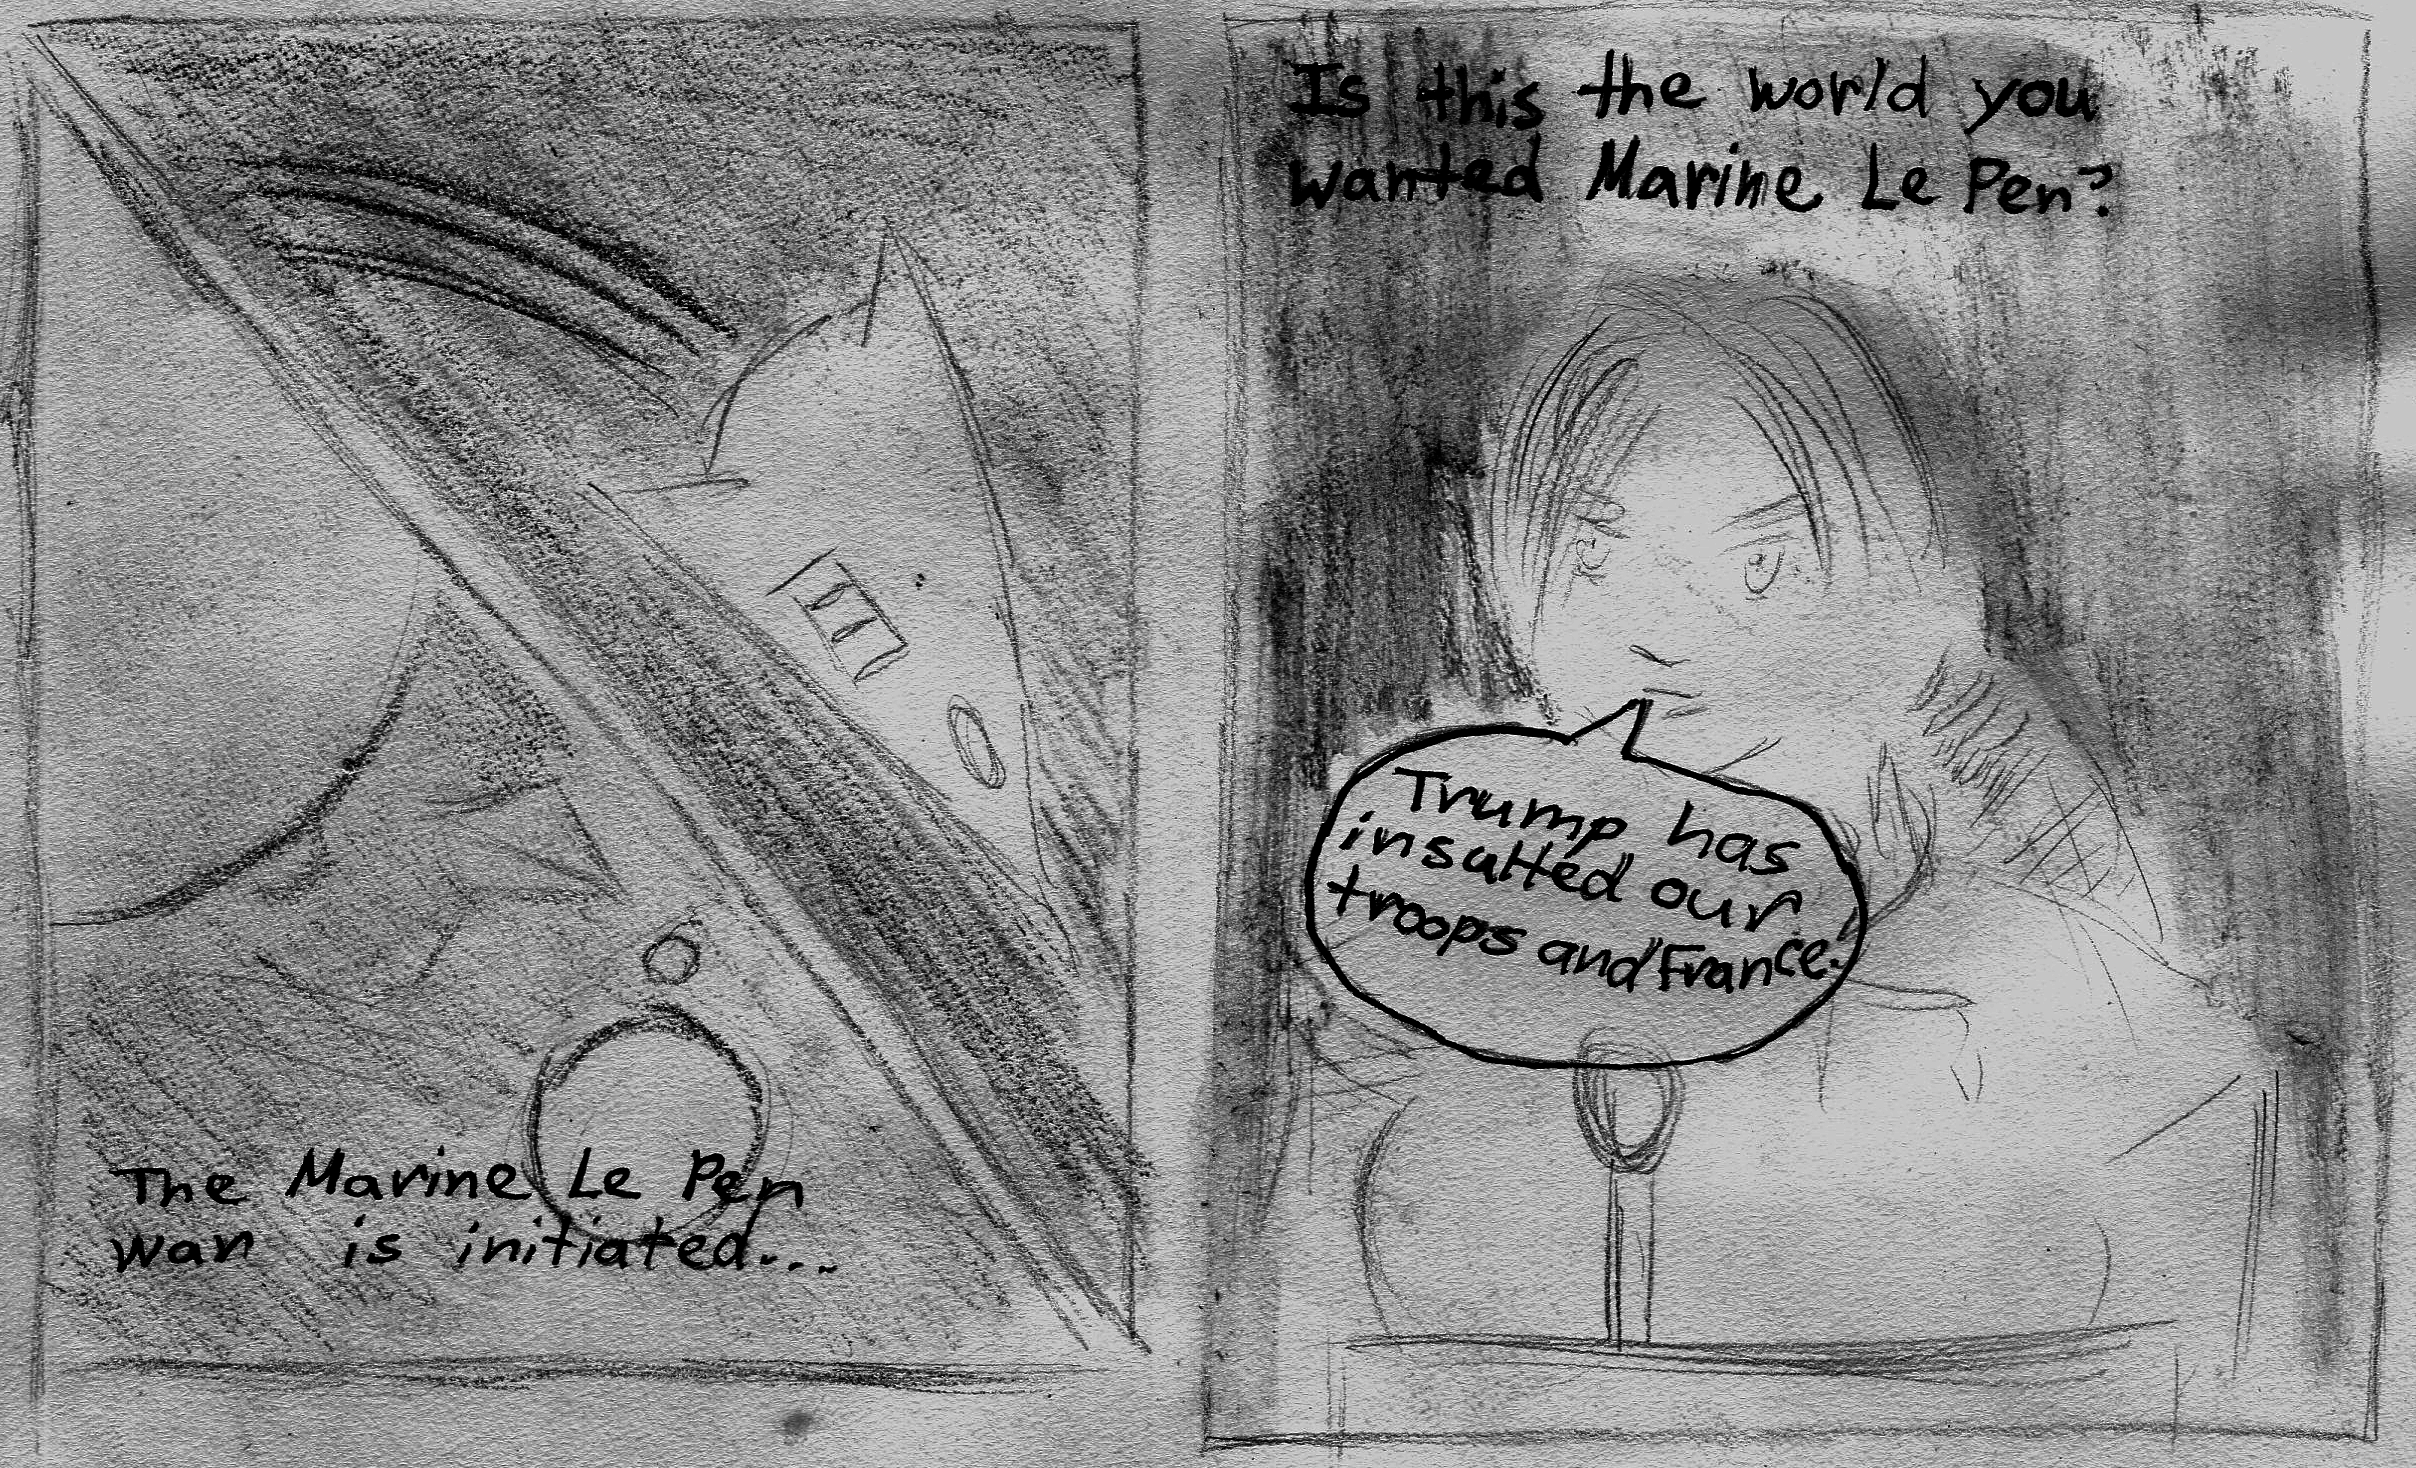 The Marine Le Pen
war is initiated...
Is this the world you
wanted Marine Le Pen?
Trump has
insulted our
troops and France.